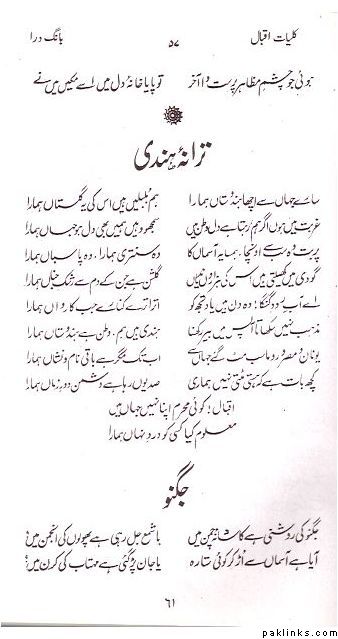 کلیات اقبال ۵۷ بانگ درا
ہوئی جو چشمِ مظاہر پرست وا آخر تو پایا خانۂ دل میں اسے مکیں میں نے
ترانۂ ہندی
سارے جہاں سے اچھا ہندوستاں ہمارا ہم بلبلیں ہیں اس کی یہ گلستاں ہمارا
غربت میں ہوں اگر ہم رہتا ہے دل وطن میں سمجھو وہیں ہمیں بھی دل ہو جہاں ہمارا
پربت وہ سب سے اونچا، ہمسایہ آسماں کا وہ سنتری ہمارا، وہ پاسباں ہمارا
گودی میں کھیلتی ہیں اس کی ہزاروں ندیاں گلشن ہے جن کے دم سے رشکِ جناں ہمارا
اے آبِ رودِ گنگا! وہ دن ہیں یاد تجھ کو اترا ترے کنارے جب کارواں ہمارا
مذہب نہیں سکھاتا آپس میں بیر رکھنا ہندی ہیں ہم، وطن ہے ہندوستاں ہمارا
یونان و مصر و روما سب مٹ گئے جہاں سے اب تک مگر ہے باقی نام و نشاں ہمارا
کچھ بات ہے کہ ہستی مٹتی نہیں ہماری صدیوں رہا ہے دشمن دورِ زماں ہمارا
اقبال! کوئی محرم اپنا نہیں جہاں میں
معلوم کیا کسی کو دردِ نہاں ہمارا
جگنو
جگنو کی روشنی ہے کاشانۂ چمن میں یا شمع جل رہی ہے پھولوں کی انجمن میں
آیا ہے آسماں سے اڑ کر کوئی ستارہ یا جان پڑ گئی ہے مہتاب کی کرن میں
۶۱
paklinks.com